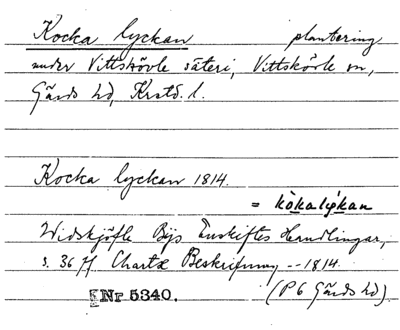 Kocka lyckan plantering
under Vittskövle säteri, Vittskövle sn,
Gärds hd, Krstd. l.
Kocka lyckan 1814.
= kòkalýkan
Widskjöfle Bys Enskiftes Handlingar,
s. 36 ff. Charta Beskrifning -- 1814.
Nr 5340. (P 6 Gärds hd).